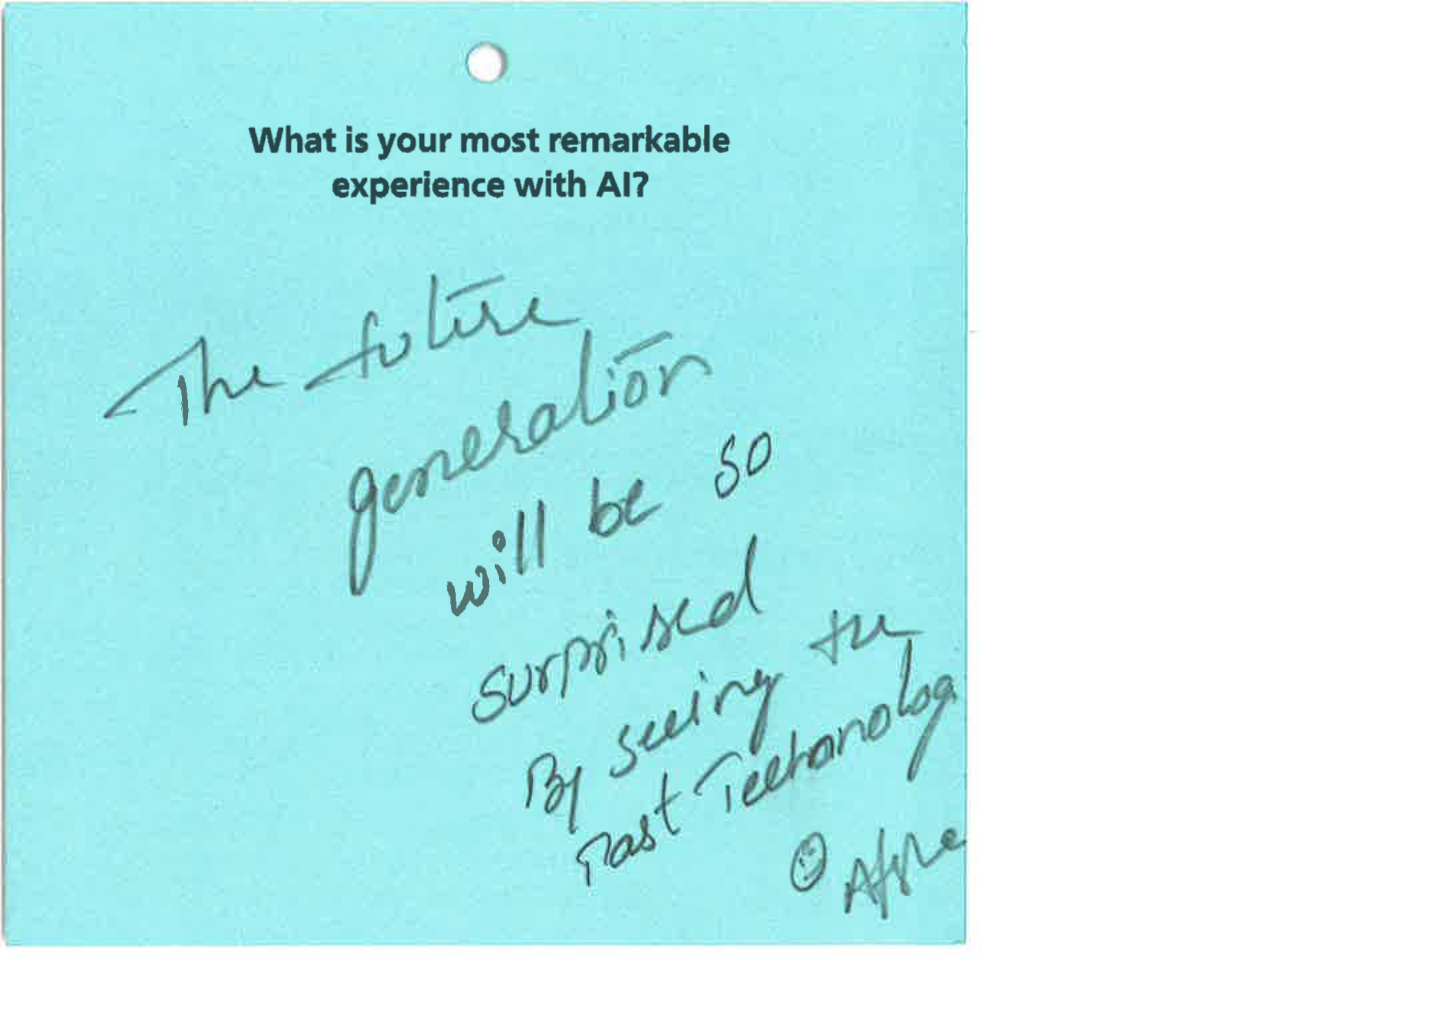 What is your most remarkable
experience with AI?
The future
generation
will be so
surprised
By seeing the
Past Techonolog